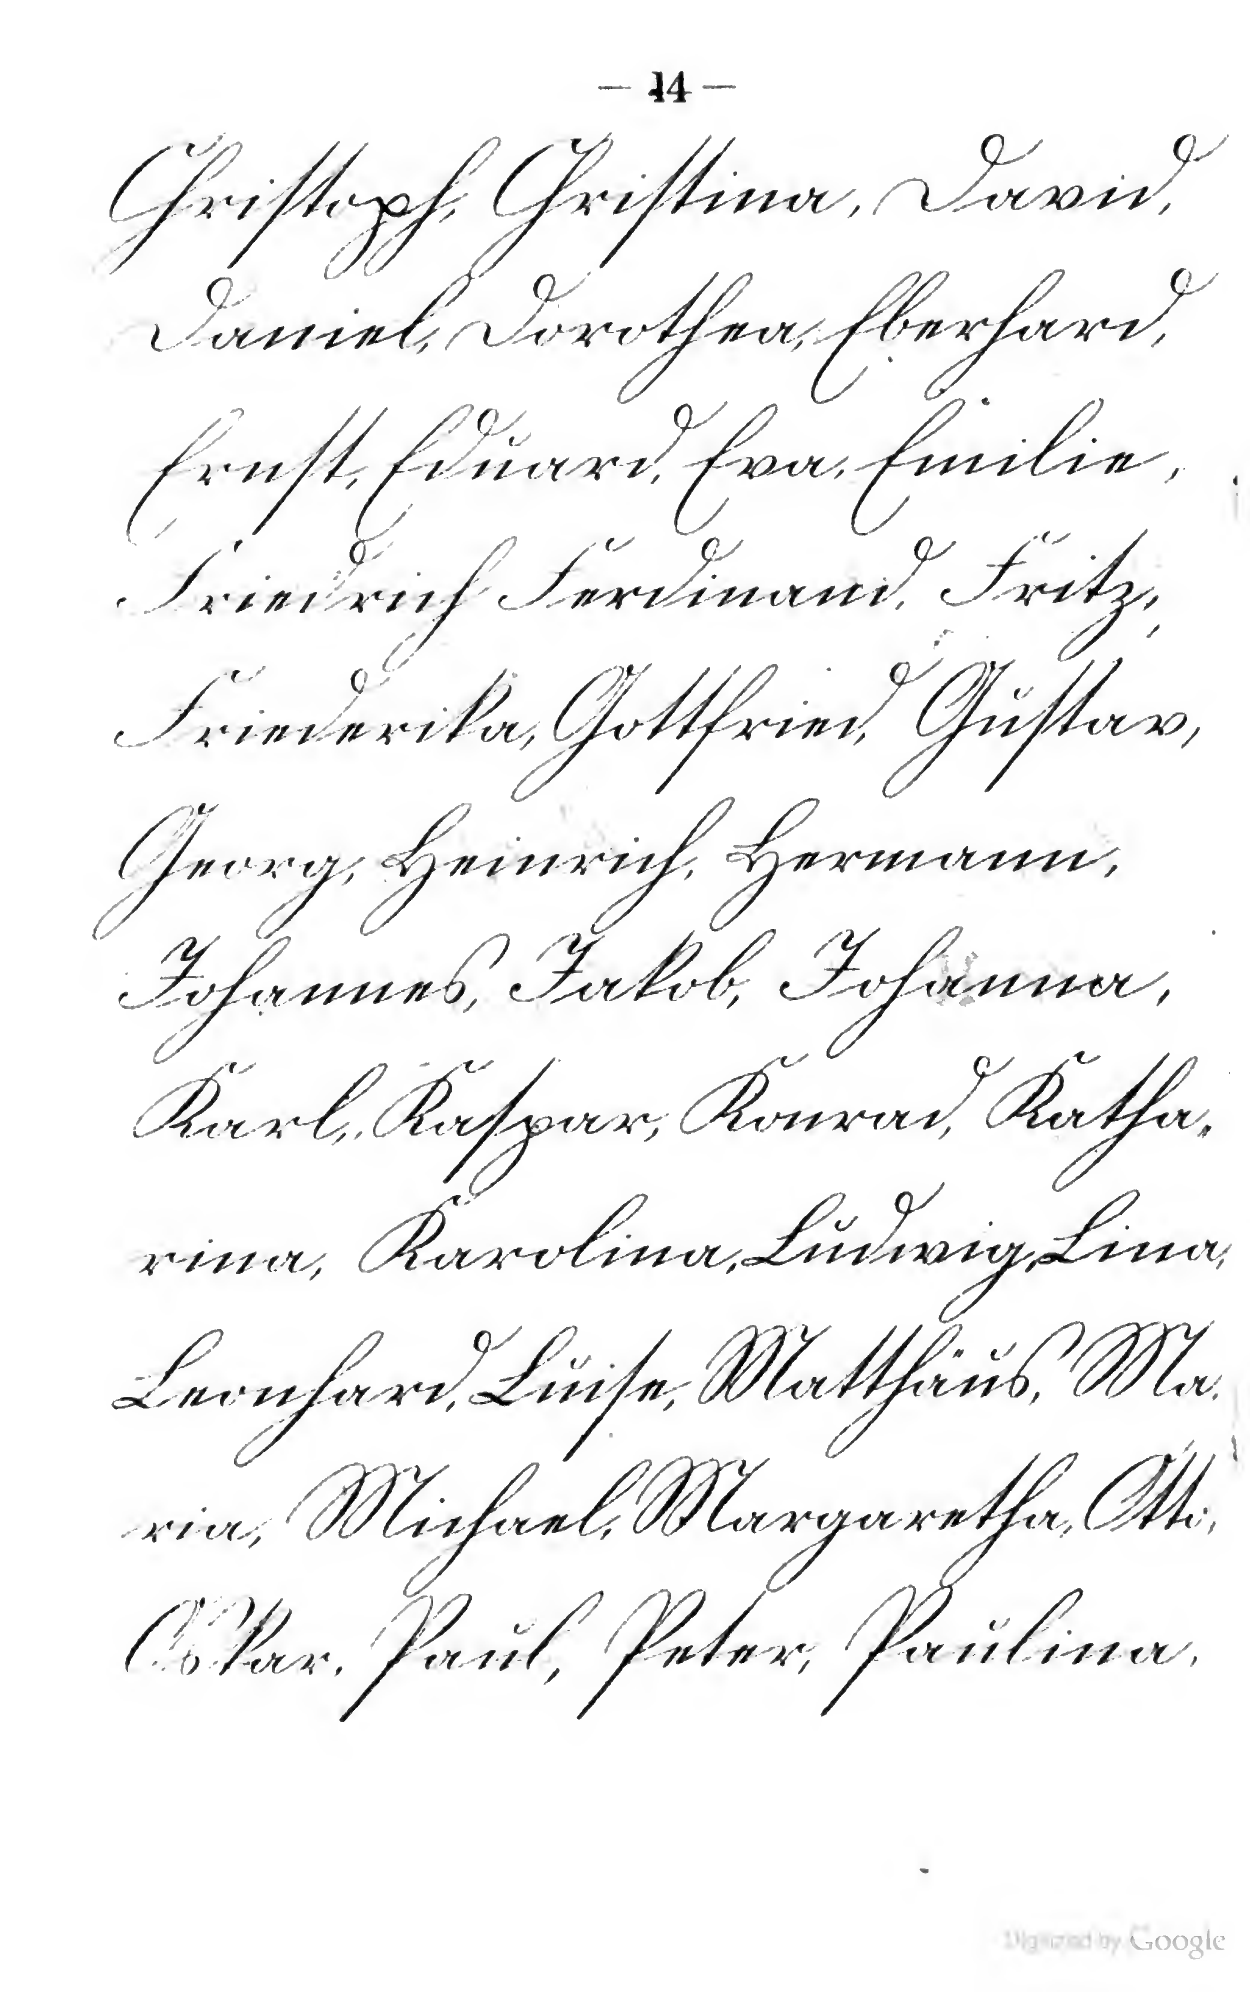 — 14 —
Christoph, Christina, David,
Daniel, Dorothea, Eberhard,
Ernst, Eduard, Eva, Emilie,
Friedrich Ferdinand, Fritz,
Friederika, Gottfried, Gustav,
Georg, Heinrich, Hermann,
Johannes, Jakob, Johanna,
Karl, Kaspar, Konrad, Katha-
rina, Karolina, Ludwig, Lina,
Leonhard, Luise, Matthäus, Ma-
ria, Michael, Margaretha, Otto,
Oskar, Paul, Peter, Paulina,
Digitized by Google